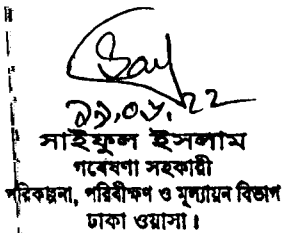 ২৯.০৮.২২
সাইফুল ইসলাম
গবেষণা সহকারী
পরিকল্পনা, পরিবীক্ষণ ও মূল্যায়ন বিভাগ
ঢাকা ওয়াসা।